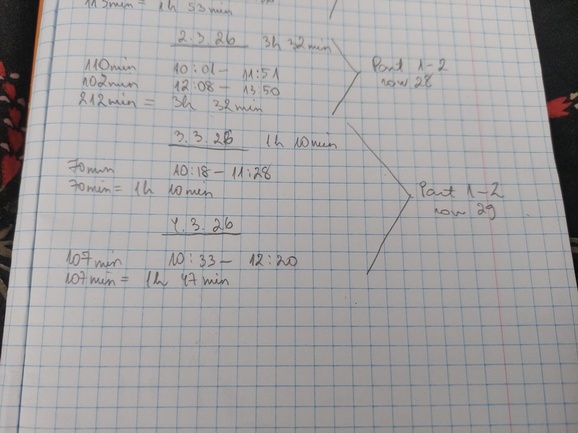 113min = 1h 53min
2.3.26 3h 32min
110min 10:01 - 11:51
102min 12:08 - 13:50
212min = 3h 32min
Part 1-2
row 28
3.3.26 1h 10min
70min 10:18 - 11:28
70min = 1h 10min
Part 1-2
row 29
4.3.26
107min 10:33 - 12:20
107min = 1h 47min